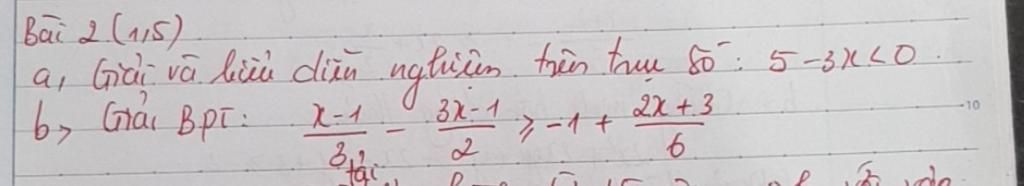 Bài 2 (1,5)
a, Giải và biểu diễn nghiệm trên trục số: 5-3x<0.
b, Giải BPT: x-1/3 - 3x-1/2 ≥ -1 + 2x+3/6